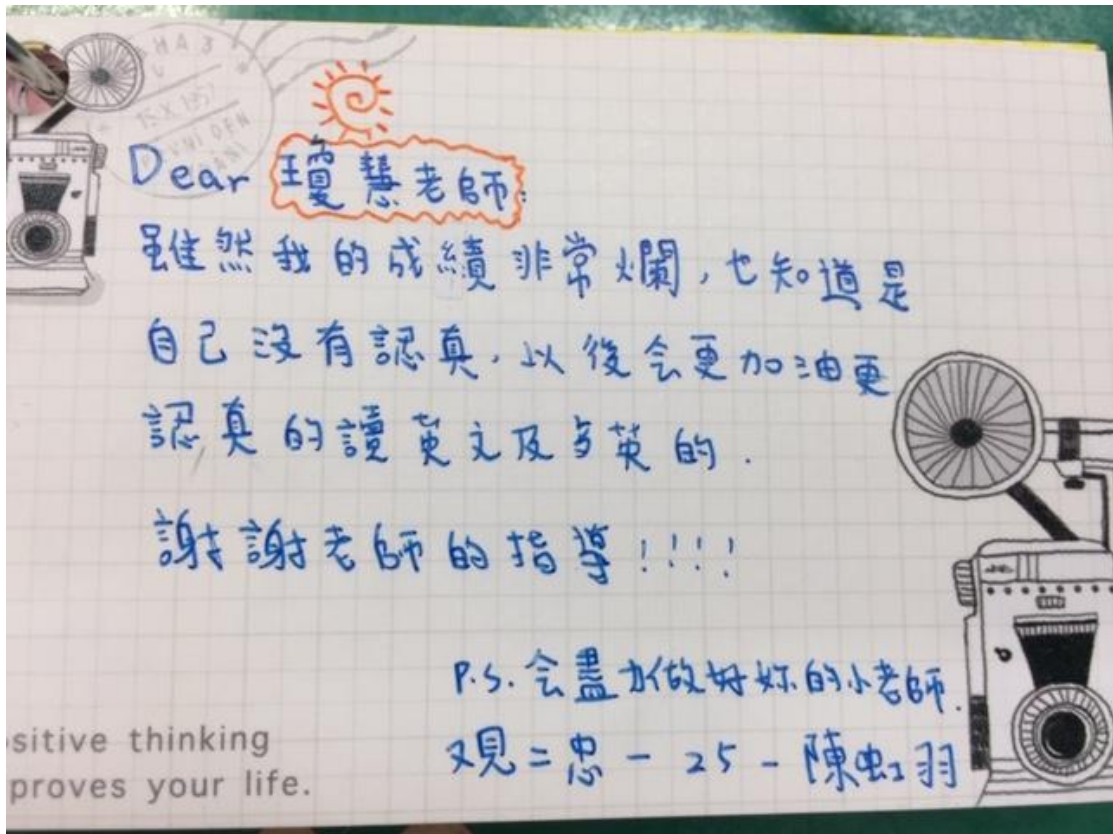 Dear 瓊慧老師:
雖然我的成績非常爛,也知道是
自己沒有認真,以後会更加油更
認真的讀英文及多英的.
謝謝老師的指導!!!!
P.S.会盡力做好妳的小老師.
观二忠-25-陳虹羽
sitive thinking
proves your life.